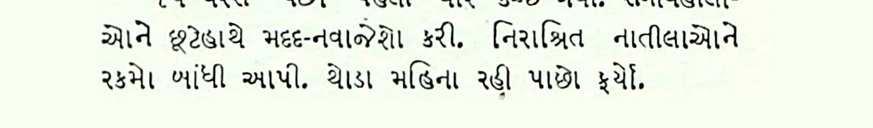 ઓને છૂટેહાથે મદદ-નવાજેશો કરી. નિરાશ્રિત નાતીલાઓને
રકમો બાંધી આપી. થોડા મહિના રહી પાછો ફર્યો.